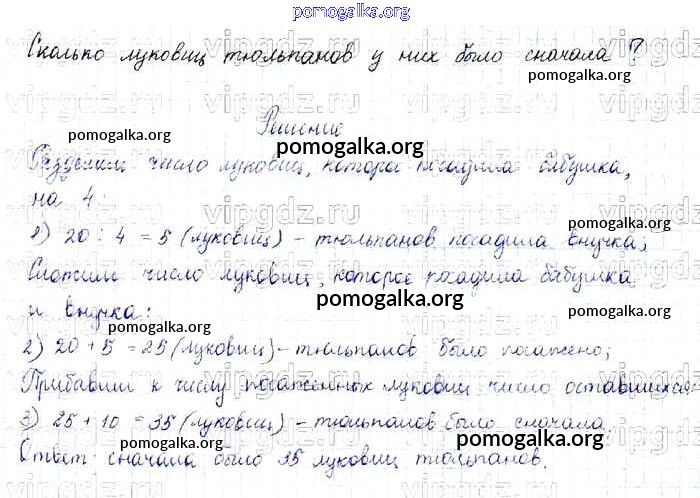 pomogalka.org
Сколько луковиц тюльпанов у них было сначала?
pomogalka.org
Решение
pomogalka.org
pomogalka.org
Разделим число луковиц, которое посадила бабушка,
на 4:
pomogalka.org
pomogalka.org
1) 20 : 4 = 5 (луковиц) – тюльпанов посадила внучка;
Сложим число луковиц, которое посадила бабушка
и внучка:
pomogalka.org
pomogalka.org
2) 20 + 5 = 25 (луковиц) – тюльпанов было посажено;
Прибавим к числу посаженных луковиц число оставшихся:
3) 25 + 10 = 35 (луковиц) – тюльпанов было сначала.
pomogalka.org
pomogalka.org
Ответ: сначала было 35 луковиц тюльпанов.
vipgdz.ru